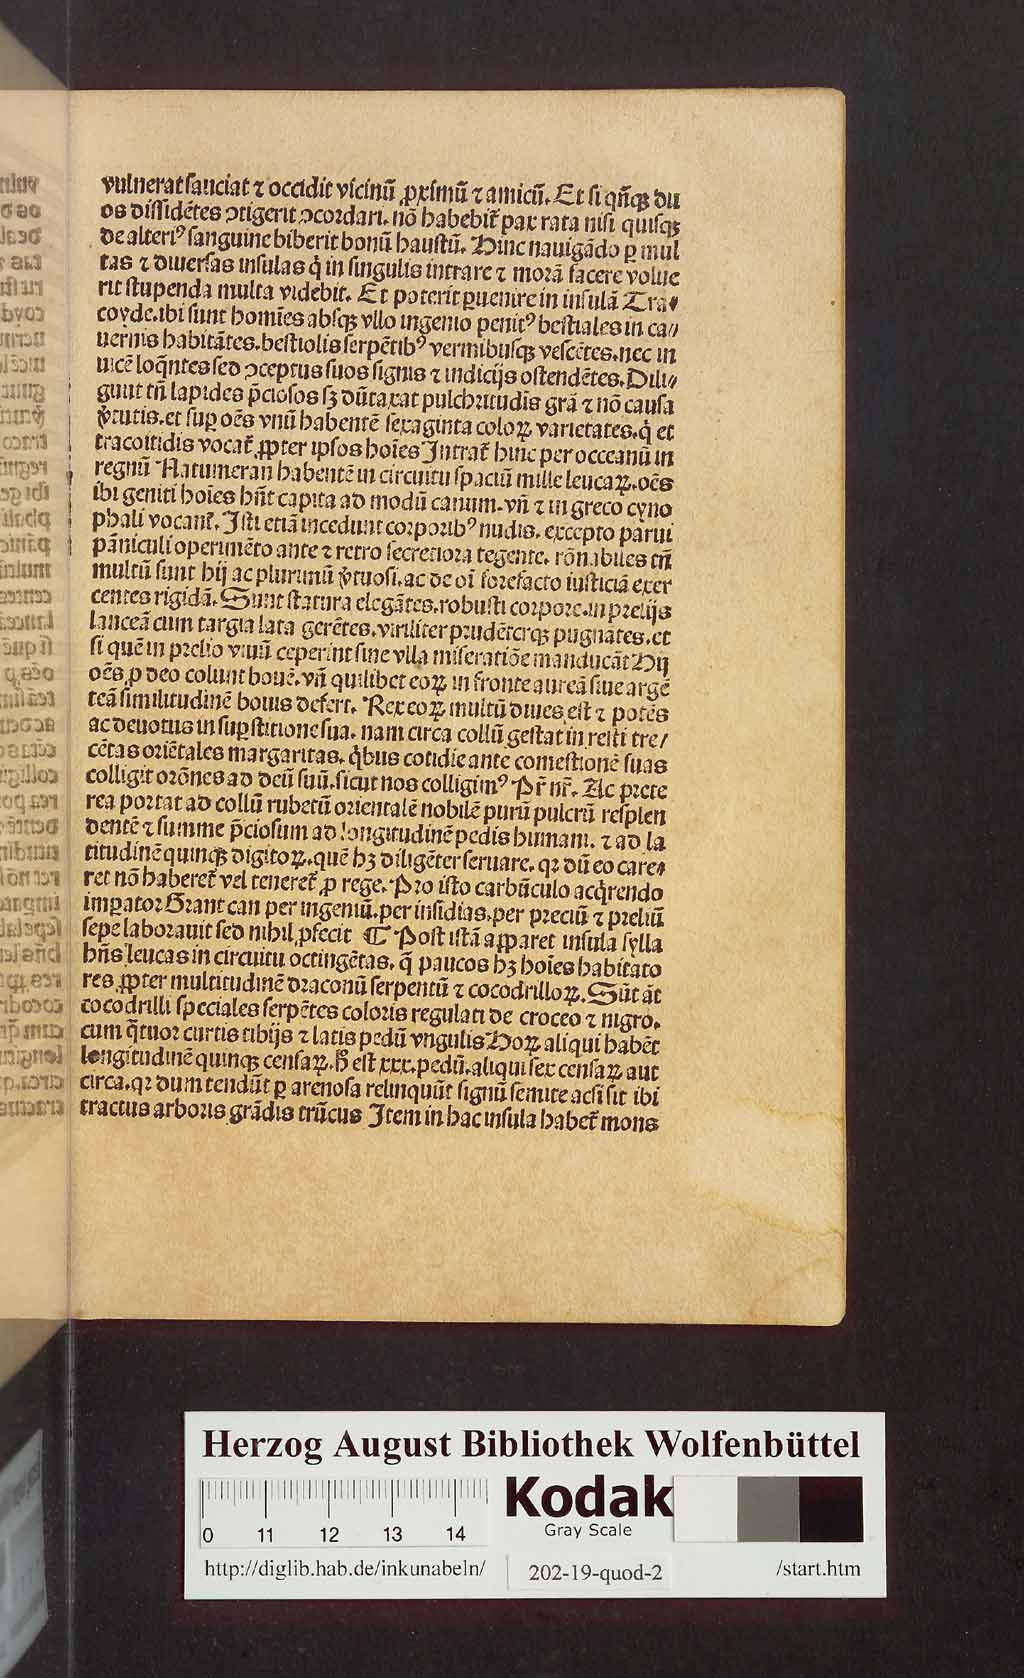 vulnerat sauciat ⁊ occidit vicinū ꝓximū ⁊ amicū. Et si qn̄qꝫ du
os dissidētes ↄtigerit ↄcordari. nō habebit̄ pax rata nisi quisqꝫ
de alteriꝰ sanguine biberit bonū haustū. Hinc nauigādo ꝑ mul
tas ⁊ diuersas insulas q̇ in singulis intrare ⁊ morā facere volue
rit stupenda multa videbit. Et poterit ꝑuenire in insulā Tra⸗
coyde. ibi sunt homīes absqꝫ vllo ingenio penitꝰ bestiales in ca⸗
uernis habitātes. bestiolis serpētibꝰ vermibusqꝫ vescētes. nec in
uicē loq̄ntes sed ↄceptus suos signis ⁊ indicijs ostendētes. Dili⸗
gunt tn̄ lapides p̄ciosos sꝫ dūtaxat pulchritudis grā ⁊ nō causa
v̓tutis. et suꝑ oēs vnū habentē sexaginta coloꝝ varietates. q̇ et
tracoitidis vocat̄ ꝓpter ipsos hoīes Intrat̄ hinc per occeanū in
regnū Natumeran habentē in circuitu spaciū mille leucaꝝ. oēs
ibi geniti hoīes hn̄t capita ad modū canum. vn̄ ⁊ in greco cyno
phali vocant̄. Isti etiā incedunt corporibꝰ nudis. excepto parui
pāniculi operimēto ante ⁊ retro secretiora tegente. rōnabiles tn̄
multū sunt hij ac plurimū v̓tuosi. ac de oī forefacto iusticiā exer
centes rigidā. Sunt statura elegātes. robusti corpore. in prelijs
lanceā cum targia lata gerētes. viriliter prudēterqꝫ pugnātes. et
si quē in prelio viuū ceperint sine vlla miseratiōe manducāt Hij
oēs ꝓ deo colunt bouē. vn̄ quilibet eoꝝ in fronte aureā siue argē
teā similitudinē bouis defert. Rex eoꝝ multū diues est ⁊ potēs
ac deuotus in suꝑstitione sua. nam circa collū gestat in resti tre/
cētas oriētales margaritas. q̇bus cotidie ante comestionē suas
colligit orōnes ad deū suū. sicut nos colligimꝰ Pr̄ nr̄. Ac prete
rea portat ad collū rubetū orientalē nobilē purū pulcrū resplen
dentē ⁊ summe p̄ciosum ad longitudinē pedis humani. ⁊ ad la
titudinē quinqꝫ digitoꝝ. quē hꝫ diligēter seruare. qꝛ dū eo care⸗
ret nō haberet̄ vel teneret̄ ꝓ rege. Pro isto carbūculo acq̇rendo
imꝑator Grant can per ingeniū. per insidias. per preciū ⁊ preliū
sepe laborauit sed nihil ꝓfecit ¶ Post istā apparet insula sylla
hn̄s leucas in circuitu octingētas. q̄ paucos hꝫ hoīes habitato
res ꝓpter multitudinē draconū serpentū ⁊ cocodrilloꝝ. Sūt āt
cocodrilli speciales serpētes coloris regulati de croceo ⁊ nigro.
cum q̄tuor curtis tibijs ⁊ latis pedū vngulis Hoꝝ aliqui habēt
longitudinē quinqꝫ censaꝝ. h̄ est xxx. pedū. aliqui sex censaꝝ aut
circa. qꝛ dum tendūt ꝑ arenosa relinquūt signū semite acsi sit ibi
tractus arboris grādis trūcus Item in hac insula habet̄ mons
Herzog August Bibliothek Wolfenbüttel
0 11 12 13 14
Kodak
Gray Scale
http://diglib.hab.de/inkunabeln/ 202-19-quod-2 /start.htm